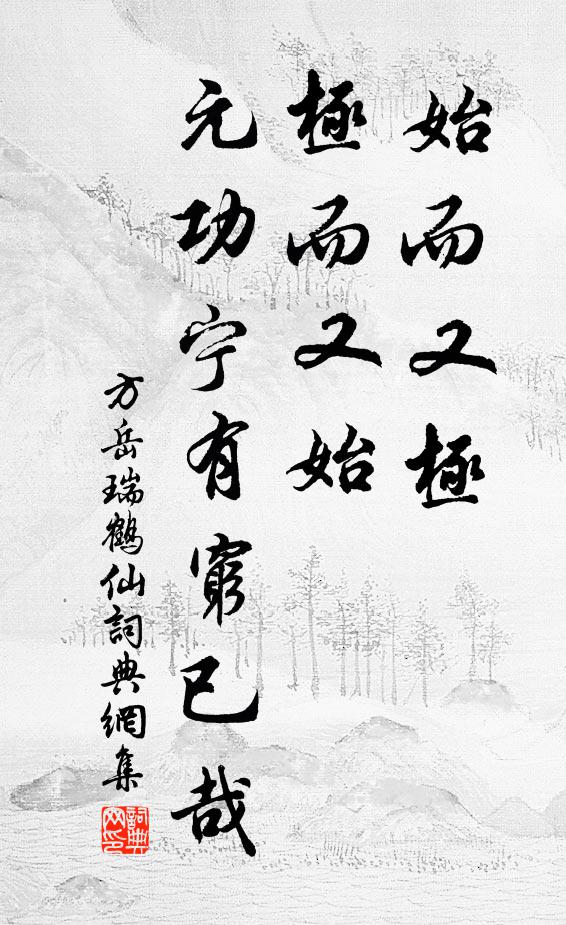 始而又極
極而又始
元功宁有窮已哉
方岳瑞鶴仙詞典網集
詞典网印